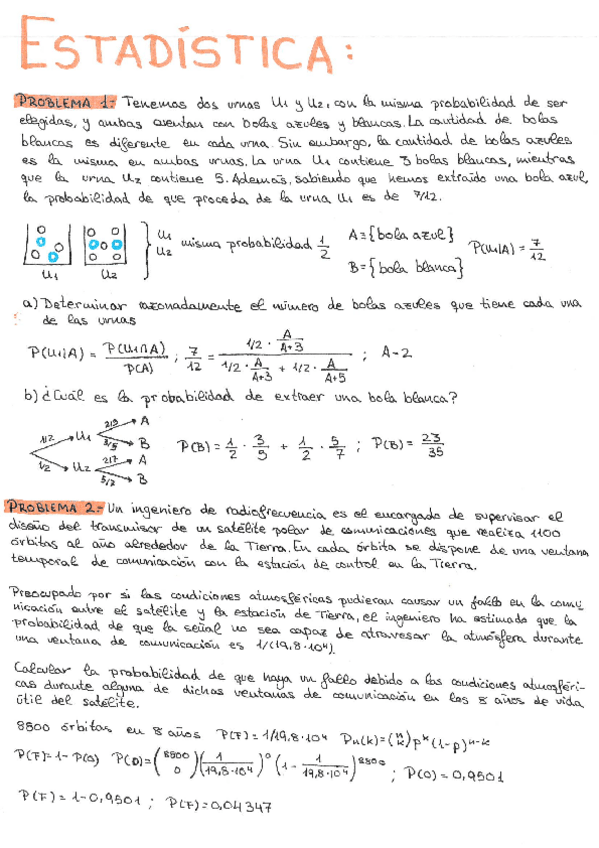 ESTADÍSTICA:
PROBLEMA 1.- Tenemos dos urnas U1 y U2, con la misma probabilidad de ser
elegidas, y ambas cuentan con bolas azules y blancas. La cantidad de bolas
blancas es diferente en cada urna. Sin embargo, la cantidad de bolas azules
es la misma en ambas urnas. La urna U1 contiene 3 bolas blancas, mientras
que la urna U2 contiene 5. Además, sabiendo que hemos extraído una bola azul,
la probabilidad de que proceda de la urna U1 es de 7/12.
U1 U2 } U1 U2 misma probabilidad 1/2 A={bola azul} B={bola blanca} P(U1|A)=7/12
a) Determinar razonadamente el número de bolas azules que tiene cada una
de las urnas
P(U1|A) = P(U1∩A)/P(A) ; 7/12 = (1/2 · A/(A+3)) / (1/2 · A/(A+3) + 1/2 · A/(A+5)) ; A-2
b) ¿Cuál es la probabilidad de extraer una bola blanca?
1/2 U1 2/5 A 3/5 B
1/2 U2 2/7 A 5/7 B
P(B) = 1/2 · 3/5 + 1/2 · 5/7 ; P(B) = 23/35
PROBLEMA 2.- Un ingeniero de radiofrecuencia es el encargado de supervisar el
diseño del transmisor de un satélite polar de comunicaciones que realiza 1100
órbitas al año alrededor de la Tierra. En cada órbita se dispone de una ventana
temporal de comunicación con la estación de control en la Tierra.
Preocupado por si las condiciones atmosféricas pudieran causar un fallo en la comu-
nicación entre el satélite y la estación de Tierra, el ingeniero ha estimado que la
probabilidad de que la señal no sea capaz de atravesar la atmósfera durante
una ventana de comunicación es 1/(19,8·10⁴).
Calcular la probabilidad de que haya un fallo debido a las condiciones atmosféri-
cas durante alguna de dichas ventanas de comunicación en los 8 años de vida
útil del satélite.
8800 órbitas en 8 años P(F)=1/19,8·10⁴ Pn(k)=(n k) pᵏ (1-p)ⁿ⁻ᵏ
P(F)=1-P(0) P(0)=(8800 0)(1/19,8·10⁴)⁰(1-1/19,8·10⁴)⁸⁸⁰⁰ ; P(0)=0,9501
P(F)=1-0,9501 ; P(F)=0,04347